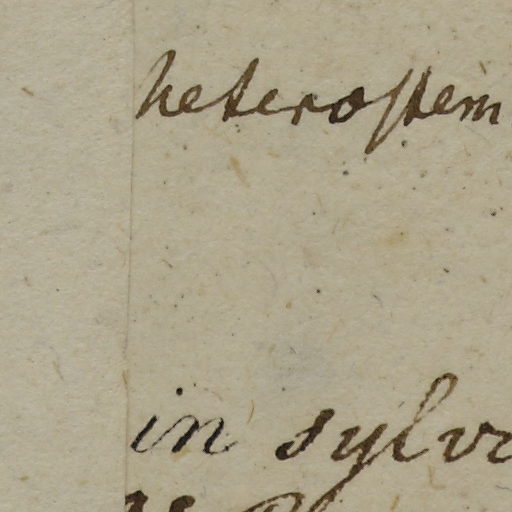 heterostem
in sylv